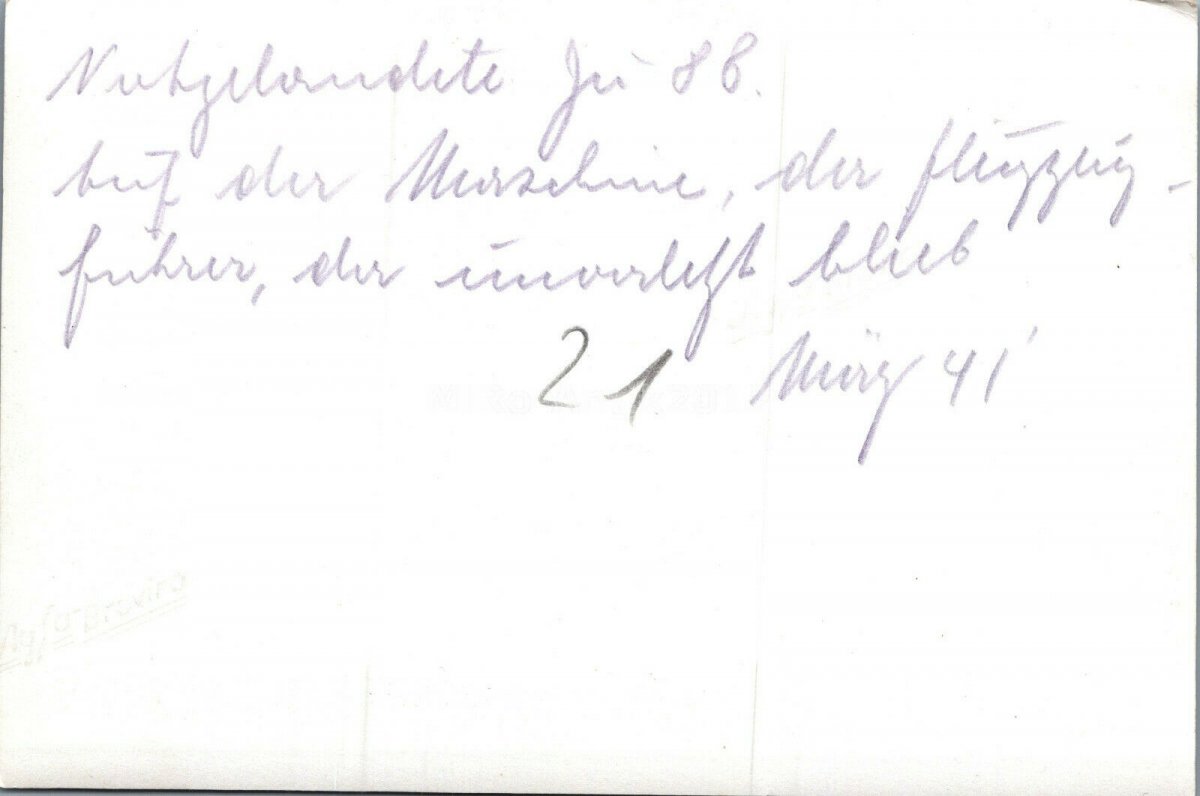 Notgelandete Ju 88.
Auf der Maschine, der Flugzeug-
führer, der unverletzt blieb
21 März 41'